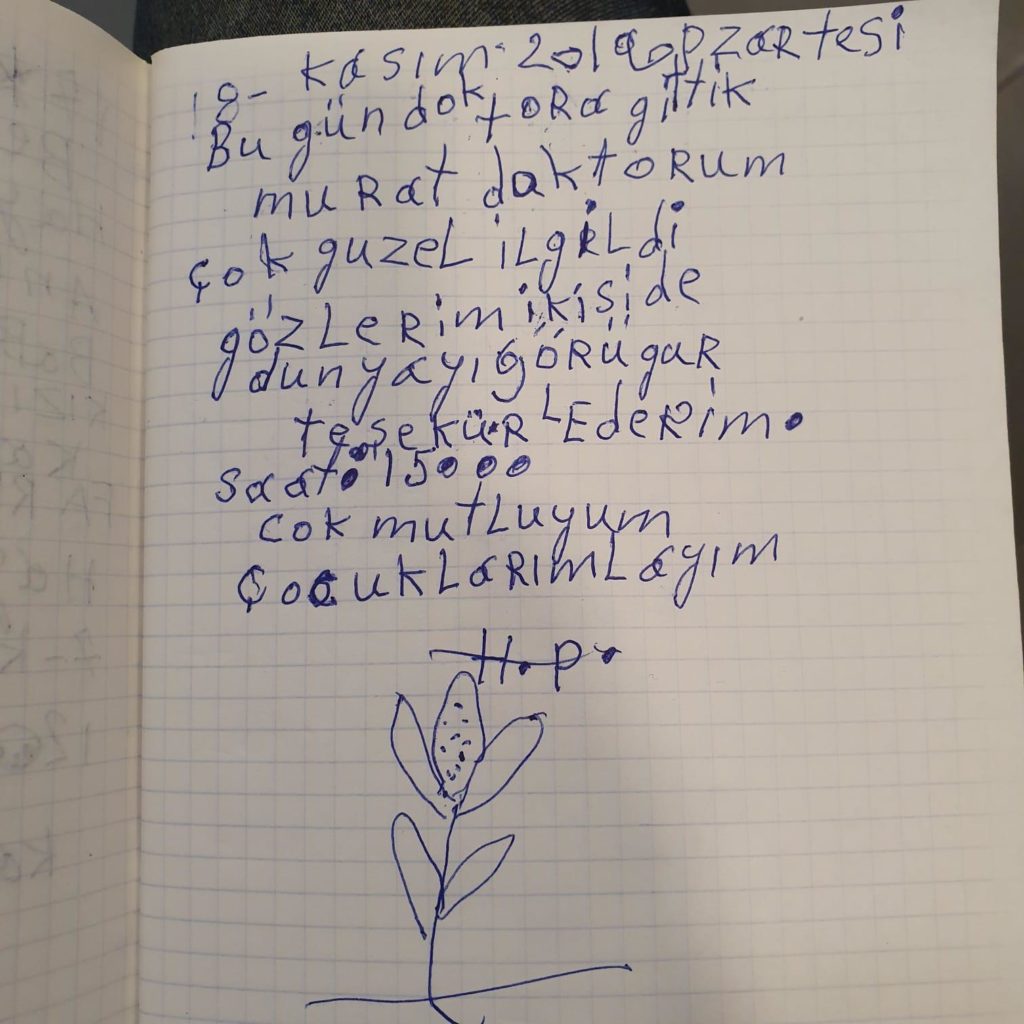 18- Kasım 2019 Pzartesi
Bu gün doktora gittik
muRat daktoRum
Çok guzeL iLgiLdi
gözLeRimikiside
dunyayıgöRügaR
teşeküR EdeRim.
saat. 15000
cok mutLuyum
ÇocukLaRımLayım
H.p.